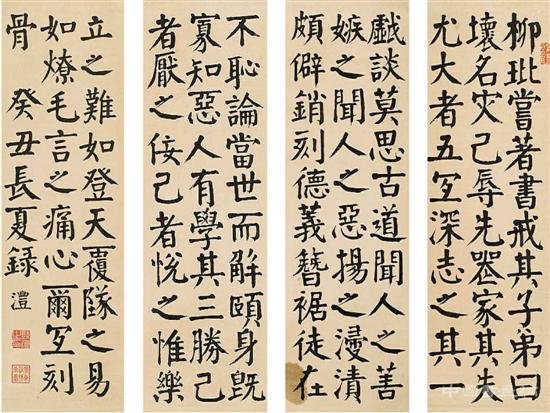 柳玭嘗著書戒其子弟曰
壞名灾己辱先喪家其失
尤大者五冝深志之其一
戲談莫思古道聞人之善
嫉之聞人之惡揚之浸漬
頗僻銷刻德義簪裾徒在
不恥論當世而解頤身旣
寡知惡人有學其三勝己
者厭之佞己者悅之惟樂
立之難如登天覆隊之易
如燎毛言之痛心爾冝刻
骨 癸丑長夏錄 澧